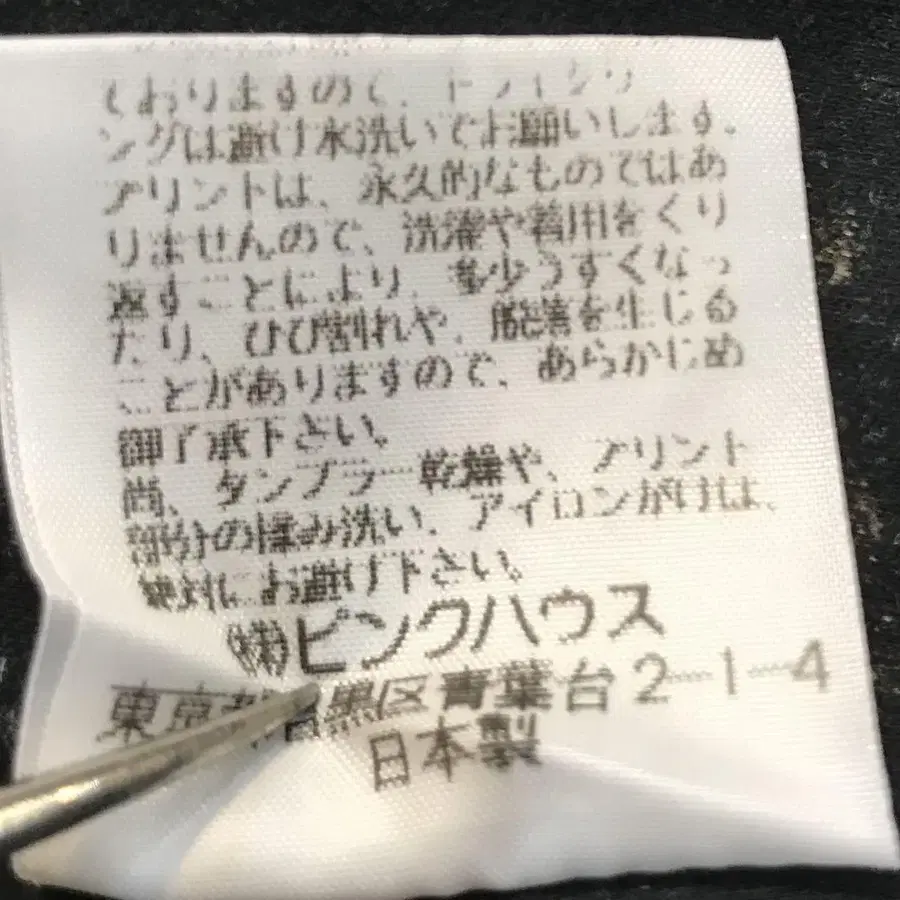 ておりますので、ドライクリ
ングは避け水洗いでお願いします。
プリントは、永久的なものではあ
りませんので、洗濯や着用をくり
返すことにより、多少うすくなっ
たり、ひび割れや、脱落を生じる
ことがありますので、あらかじめ
御了承下さい。
尚、タンブラー乾燥や、プリント
部分の揉み洗い、アイロンがけは、
絶対にお避け下さい。
㈱ピンクハウス
東京都目黒区青葉台2-1-4
日本製